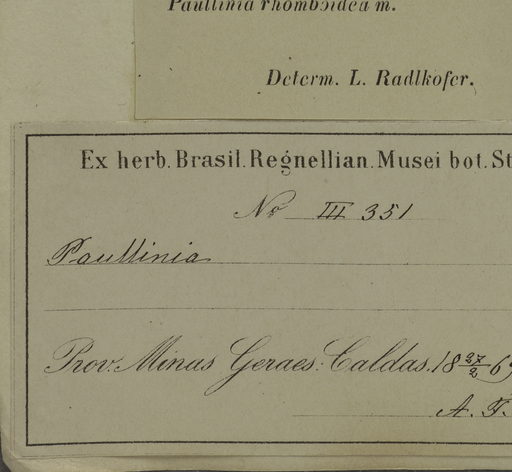 Paullinia rhomboidea m.
Determ. L. Radlkofer.
Ex herb. Brasil. Regnellian. Musei bot. St
No III 351
Paullinia
Prov. Minas Geraes: Caldas. 18 27/2 69
A. F.